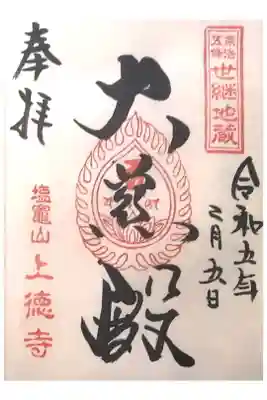 京都
五條
世継地蔵
奉拝
大慈殿
令和五年
二月五日
塩竈山
上徳寺